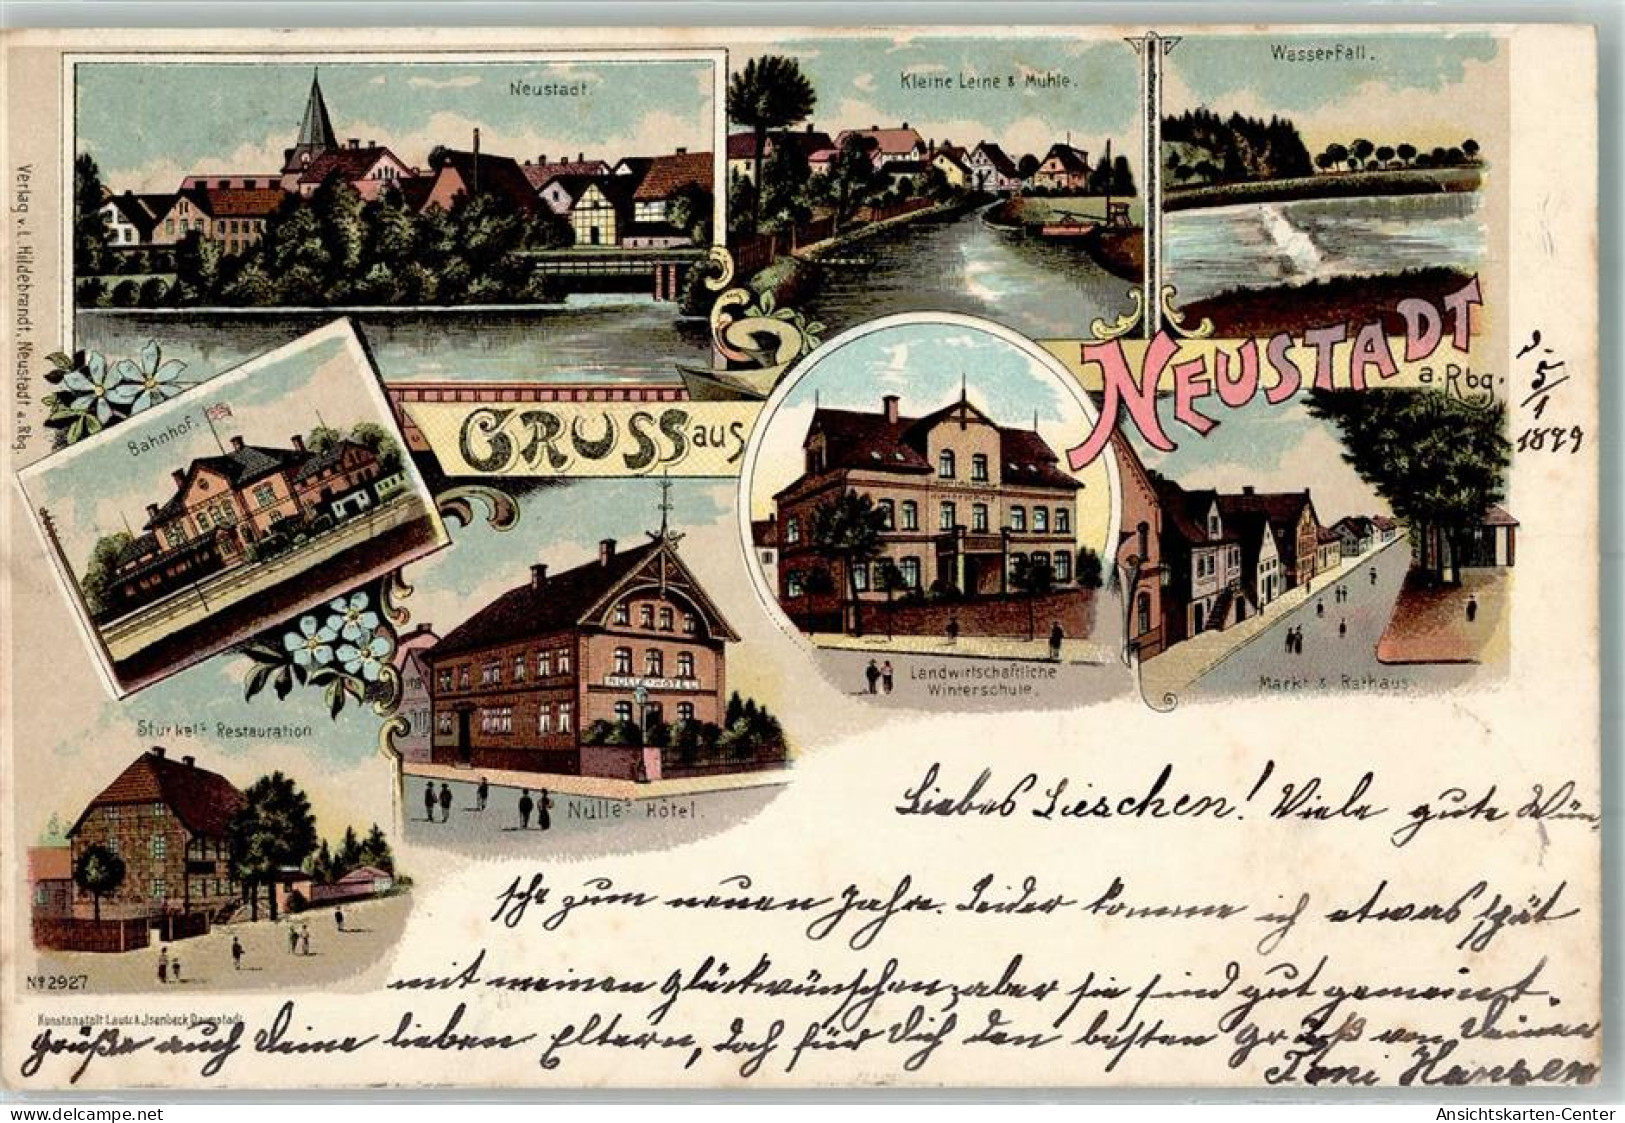 Neustadt.
Kleine Leine & Mühle.
Wasserfall.
Verlag v. L. Hildebrandt, Neustadt a. Rbg.
Bahnhof.
GRUSS aus
NEUSTADT
a. Rbg.
5/1
1899
NÜLLE'S HÔTEL
Landwirtschaftliche
Winterschule.
Markt & Rathaus.
Restauration
Nülle's Hôtel.
Liebes Lieschen! Viele gute Wün-
sche zum neuen Jahre. Leider komme ich etwas spät
mit meinen Glückwünschen, aber sie sind gut gemeint.
Grüße auch Deine lieben Eltern, doch für Dich den besten Gruß von Deiner
Toni Hansen
No 2927
Kunstanstalt Lautz & Jsenbeck Darmstadt
01220927 - Neustadt am Ruebenberge
Ansichtskarten-Center